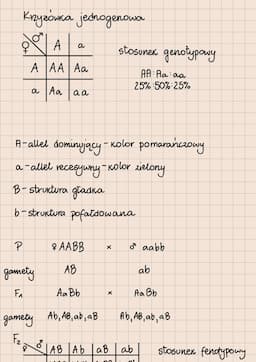 Krzyżówka jednogenowa
♀ ♂ A a
stosunek genotypowy
A AA Aa
AA : Aa : aa
25% : 50% : 25%
a Aa aa
A - allel dominujący - kolor pomarańczowy
a - allel recesywny - kolor zielony
B - struktura gładka
b - struktura pofałdowana
P ♀ AABB × ♂ aabb
gamety AB ab
F₁ AaBb × AaBb
gamety Ab, AB, ab, aB Ab, AB, ab, aB
F₂ ♀ ♂ AB Ab aB ab stosunek fenotypowy